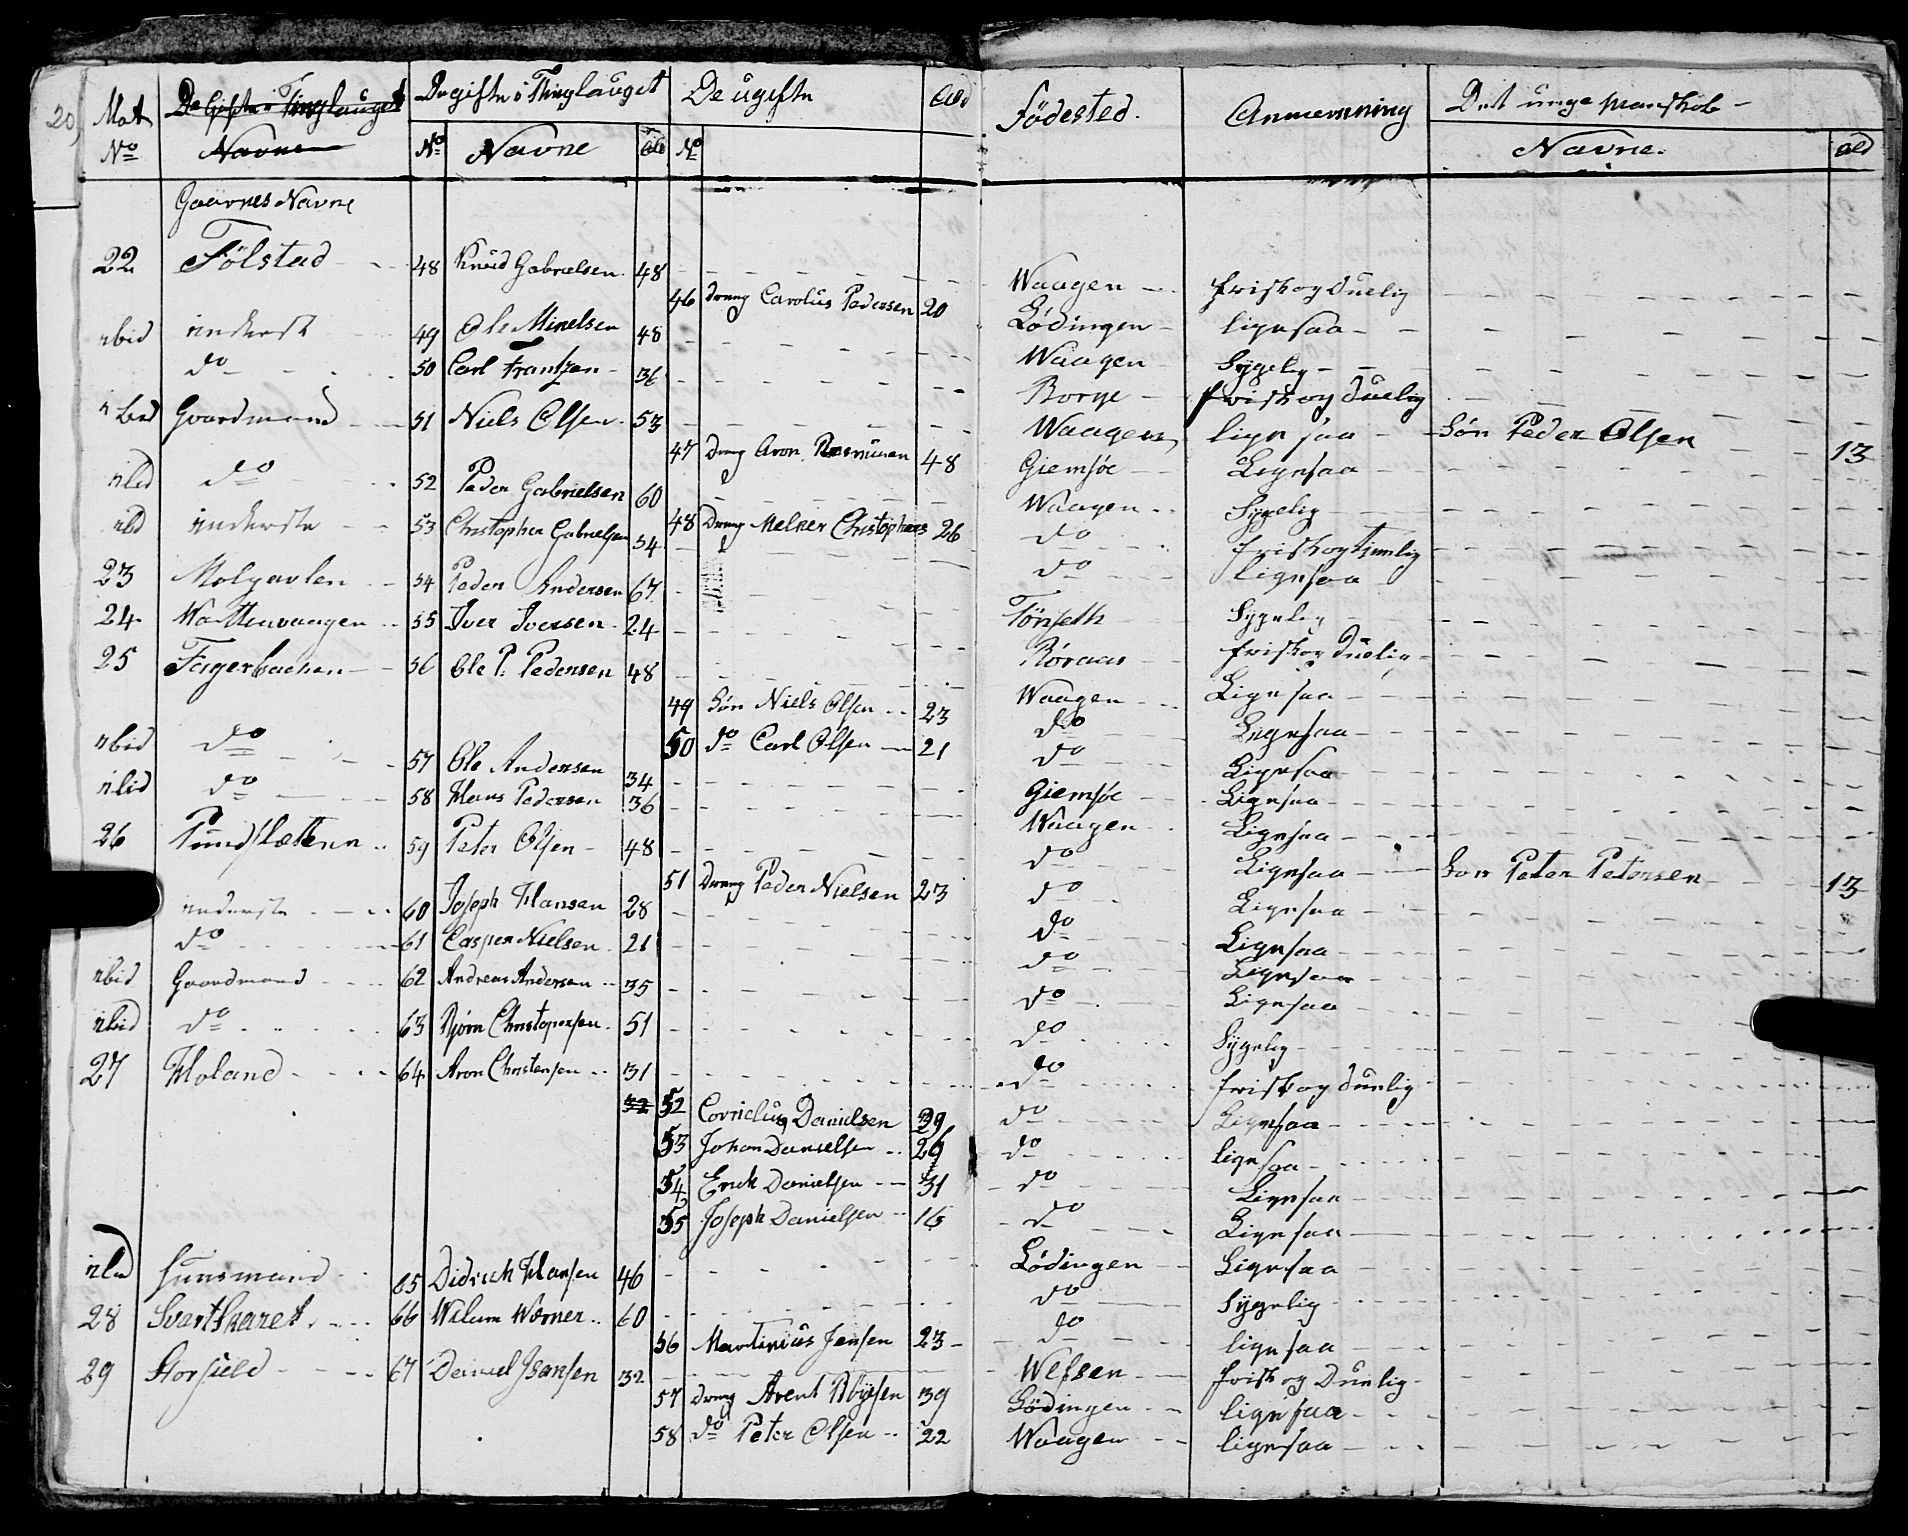 20
Mat No | De Gifte i Tinglauget Navne | De gifte i Thinglauget No Navne Ald | De ugifte No | Ald | Fødested. | Anmerkning | Det unge Mandskab - Navne. | Ald
Gaarnes Navne
22 Følstad 48 Knud Gabrielsen 48 Waagen frisk og Duelig
46 Dreng Carolus Pedersen 20 Lödingen ligesaa
ibid inderst 49 Ole Mikelsen 48 Waagen Sygelig
do 50 Carl Frantzen 36 Borge frisk og Duelig
ibid Goardmand 51 Niels Olsen 53 Waagen ligesaa Sön Peder Olsen 13
47 Dreng Aron Rasmusen 48 Giemsøe Ligesaa
ibid do 52 Peder Gabrielsen 60 Waagen Sygelig
48 Dreng Melker Christophers 26 do frisk og tjenlig
ibid inderste 53 Christopher Gabrielsen 54 do ligesaa
23 Molgavlen 54 Peder Andersen 67 Tönseth Sygelig
24 Watterwaagen 55 Iver Iversen 24 Röraas frisk og Duelig
25 Fagerbachen 56 Ole P. Pedersen 48 Waagen Ligesaa
49 Sön Niels Olsen 23 do Ligesaa
50 do Carl Olsen 21 do Ligesaa
ibid do 57 Ole Andersen 34 Giemsøe Ligesaa
ibid do 58 Hans Pedersen 36 Waagen Ligesaa
26 Pundslettenn 59 Peter Olsen 48 do Ligesaa Son Peter Petersen 13
51 Dreng Peder Nielsen 23 do Ligesaa
inderste 60 Joseph Hansen 28 do Ligesaa
do 61 Casper Nielsen 21 do Ligesaa
ibid Goardmand 62 Andreas Andersen 35 do Ligesaa
ibid do 63 Björn Christopersen 51 do Sygelig
27 Holand 64 Aron Christensen 31 do frisk og Duelig
32 52 Cornelius Danielsen 39 do Ligesaa
53 Johan Danielsen 26 do ligesaa
54 Erick Danielsen 31 do Ligesaa
55 Joseph Danielsen 16 do Ligesaa
ibid Huusmand 65 Didrich Hansen 46 Lödingen Ligesaa
28 Svartskaret 66 Wilum Wærner 60 do Sygelig
56 Martinius Jensen 23 do ligesaa
29 Storfield 67 Daniel Isansen 32 Wefsen frisk og Duelig
57 Dreng Arent Röyesen 39 Lödingen ligesaa
58 do Peter Olsen 22 Waagen ligesaa